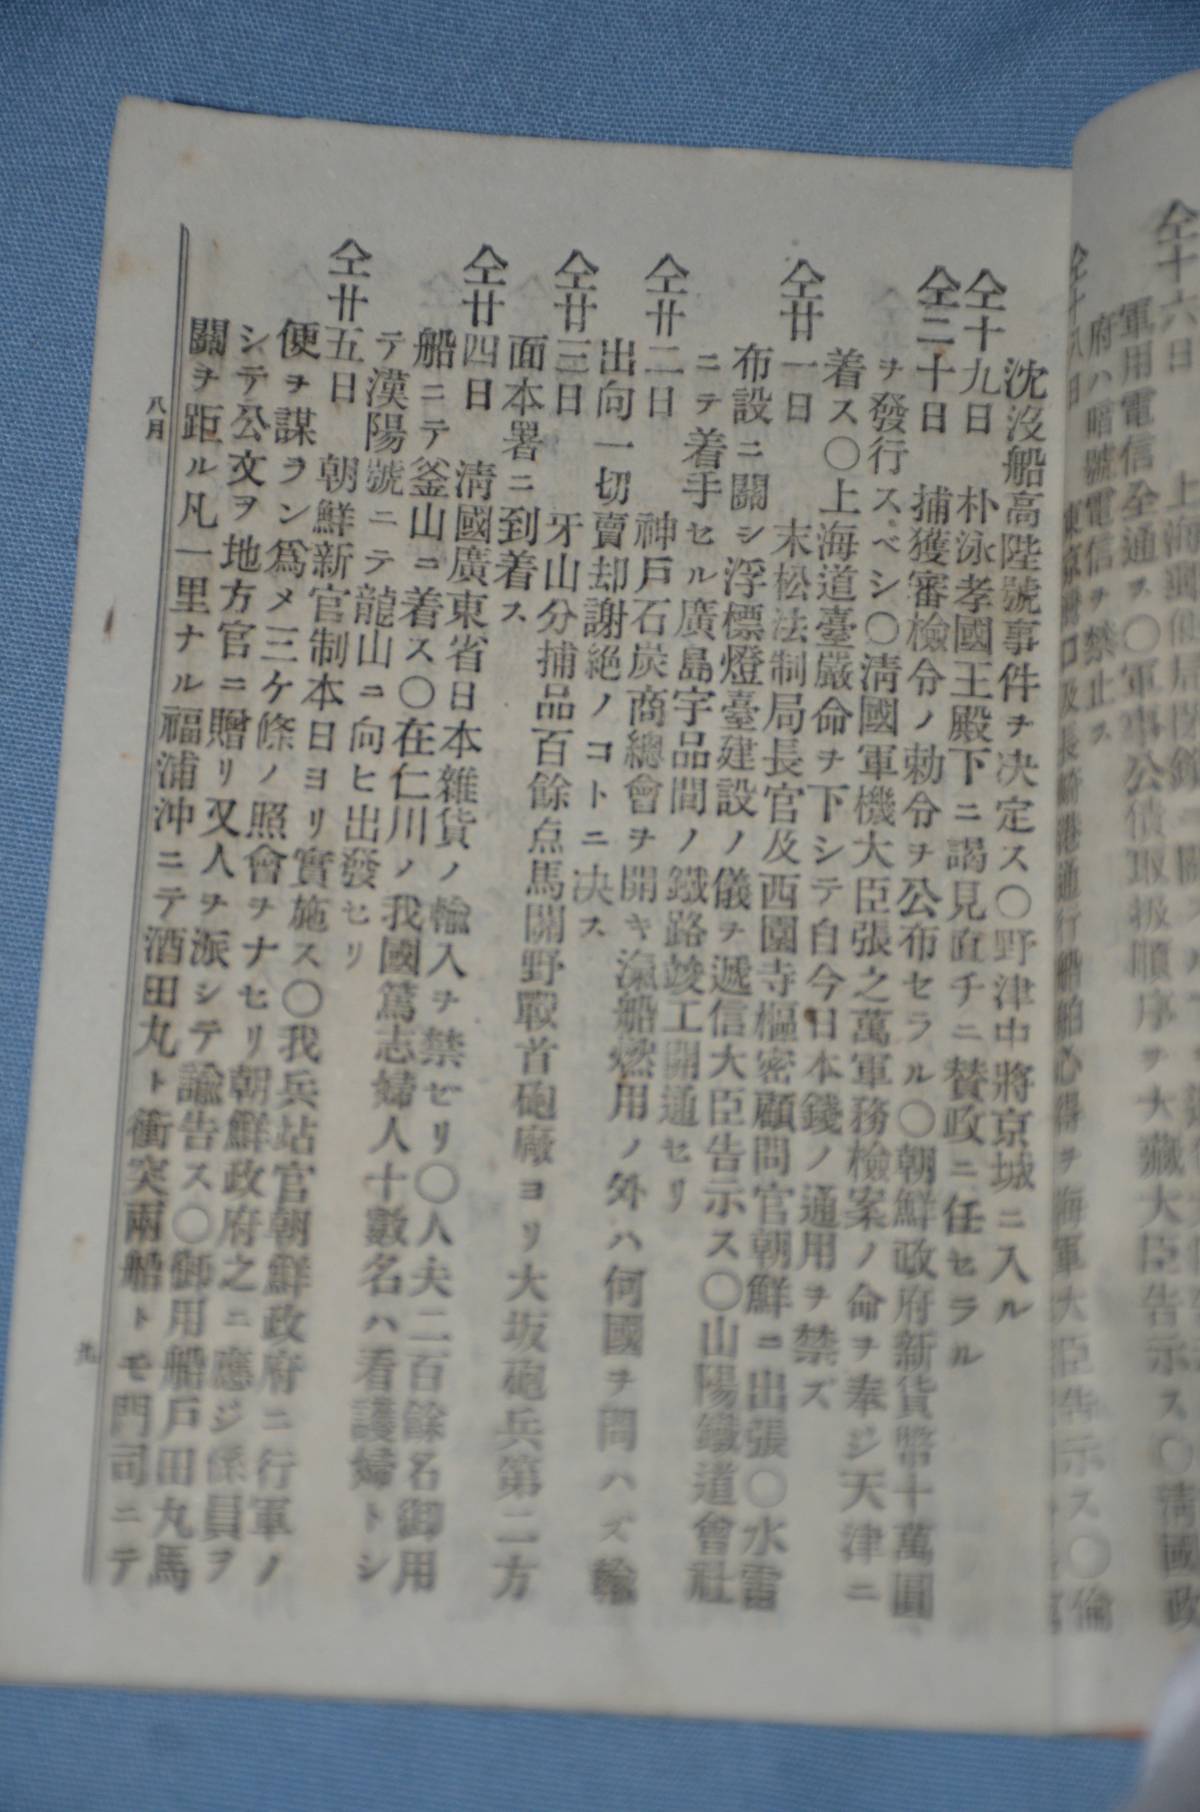 仝十六日
軍用電信全通ス〇軍事公債取扱順序ヲ大藏大臣告示ス〇淸國政
府ハ暗號電信ヲ禁止ス
沈沒船高陞號事件ヲ决定ス〇野津中將京城ニ入ル
仝十九日　朴泳孝國王殿下ニ謁見直チニ賛政ニ任セラル
仝二十日　捕獲審檢分ノ勅分ヲ公布セラル〇朝鮮政府新貨幣十萬圓
ヲ發行スベシ〇淸國軍機大臣張之萬軍務檢案ノ命ヲ奉ジ天津ニ
着ス〇上海道臺嚴命ヲ下シテ自今日本錢ノ通用ヲ禁ズ
仝廿一日　末松法制局長官及西園寺樞密顧問官朝鮮ニ出張〇水雷
布設ニ關シ浮標燈臺建設ノ儀ヲ遞信大臣告示ス〇山陽鐵道會社
ニテ着手セル廣島宇品間ノ鐵路竣工開通セリ
仝廿二日　神戶石炭商總會ヲ開キ滊船燃用ノ外ハ何國ヲ問ハズ輸
出向一切賣却謝絕ノコトニ决ス
仝廿三日　牙山分捕品百餘点馬關野戰首砲廠ヨリ大坂砲兵第二方
面本署ニ到着ス
仝廿四日　淸國廣東省日本雜貨ノ輸入ヲ禁ゼリ〇人夫二百餘名御用
船ニテ釜山ニ着ス〇在仁川ノ我國篤志婦人十數名ハ看護婦トシ
テ漢陽號ニテ龍山ニ向ヒ出發セリ
仝廿五日　朝鮮新官制本日ヨリ實施ス〇我兵站官朝鮮政府ニ行軍ノ
便ヲ謀ラン爲メ三ケ條ノ照會ヲナセリ朝鮮政府之ニ應ジ係員ヲ
シテ公文ヲ地方官ニ贈リ又人ヲ派シテ諭告ス〇御用船戶田丸馬
關ヲ距ル凡一里ナル福浦沖ニテ酒田丸ト衝突兩船トモ門司ニテ
八月
九